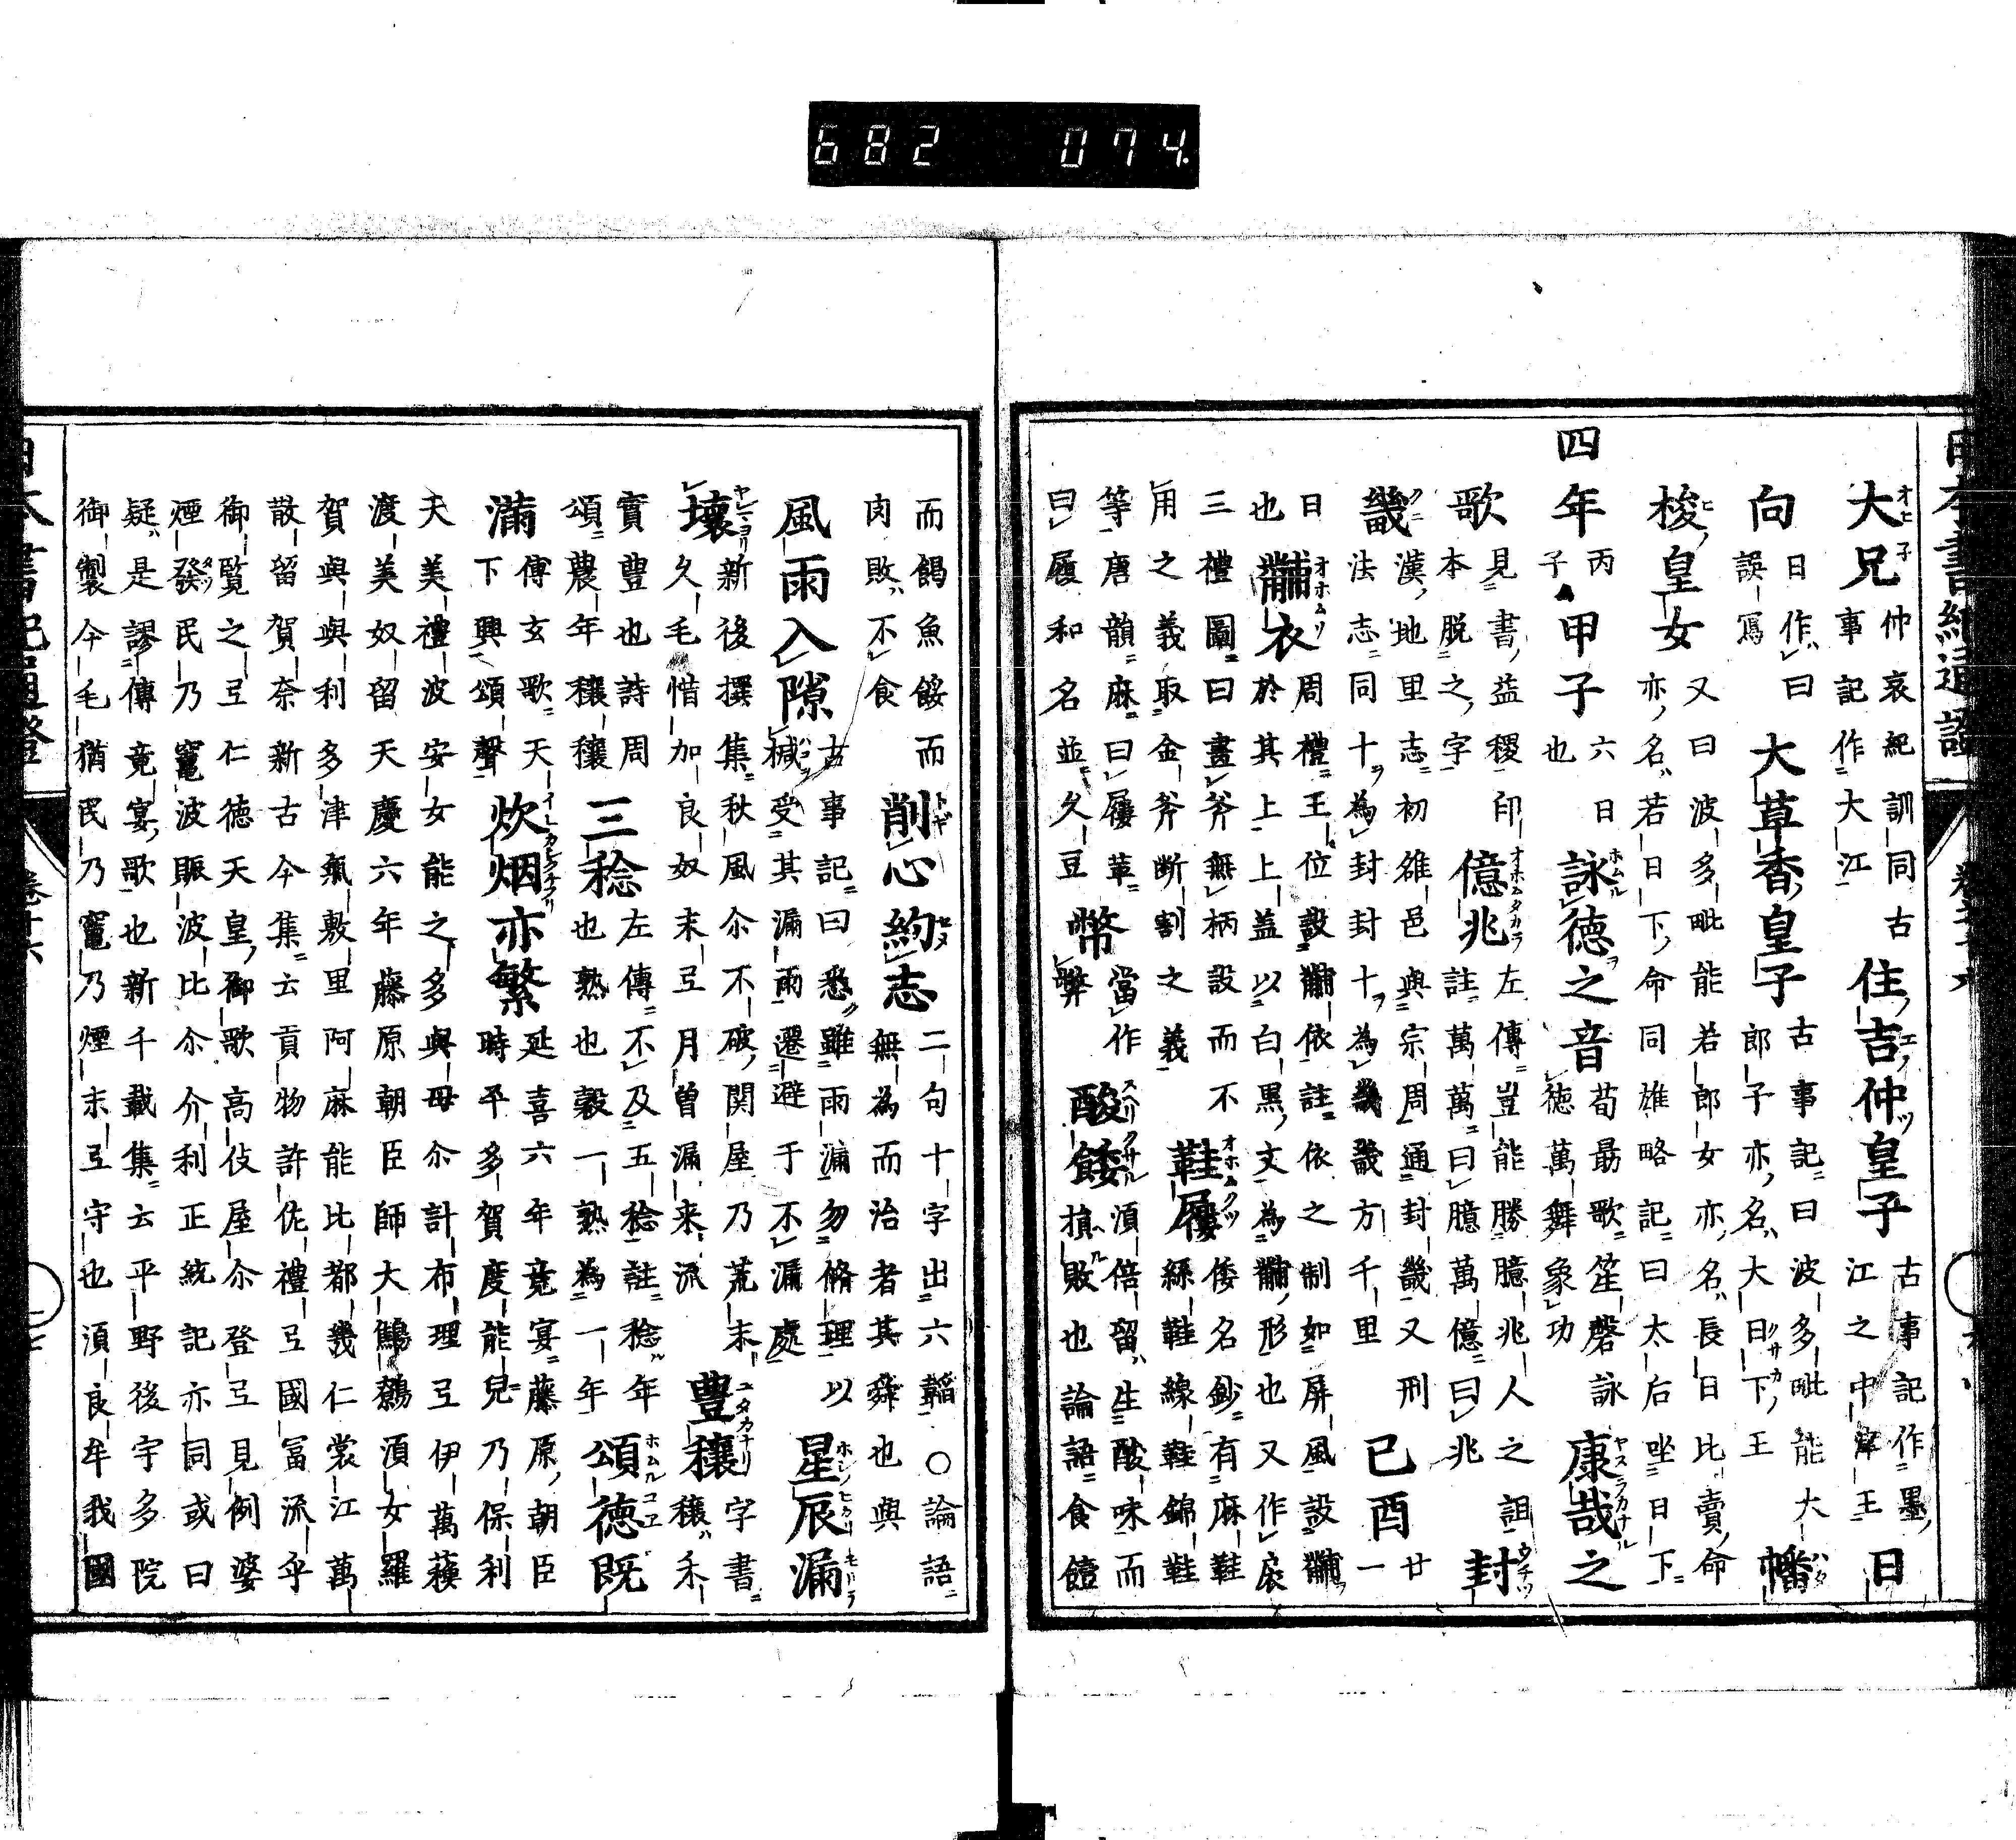 682 074
日本書紀通證
卷十六
大兄仲哀紀訓同古事記作大江住吉仲皇子古事記作墨江之中津王日
向日作曰誤寫大草香皇子古事記曰波多毗能大郎子亦名大日下王幡
梭皇女又曰波多毗能若郎女亦名長日比賣命亦名若日下命同雄略記曰太后坐日下
四年丙子甲子六日也詠德之音荀勗歌笙磬詠德萬舞象功康哉之
歌見書益稷印本脱之字億兆左傳豈能勝臆兆人之詛註萬萬曰臆萬億曰兆封
畿漢地里志初雒邑與宗周通封畿又刑法志同十為封封十為畿畿方千里己酉廿一
日也黼衣周禮王位設黼依註依之制如屏風設黼於其上上蓋以白黒文為黼形也又作扆
三禮圖曰畫斧無柄設而不用之義取金斧断割之義鞋屨倭名鈔有麻鞋絲鞋線鞋錦鞋
等唐韻麻曰屨革曰履和名並久豆幣當作弊酸餧湏倍留生酸味而損敗也論語食饐
而餲魚餒而肉敗不食削心約志二句十字出六韜○論語無為而治者其舜也與
風雨入隙古事記曰悉雖雨漏勿脩理以椷受其漏雨遷避于不漏處星辰漏
壞新後撰集秋風尒不破関屋乃荒末久毛惜加良奴末弖月曽漏来流豊穰字書穰禾
實豊也詩周頌農年穰穰三稔左傳不及五稔註稔年也熟也穀一熟為一年頌德既
滿傳玄歌天下興頌聲炊烟亦繁延喜六年竟宴藤原朝臣時平多賀度能兒乃保利
天美禮波安女能之多與母尒計布理弖伊萬蘓
渡美奴留天慶六年藤原朝臣師大鷦鷯湏女羅
賀與與利多津氣敷里阿麻能比都畿仁裳江萬
散留賀奈新古今集云貢物許佐禮弖國冨流乎
御覧之弖仁德天皇御歌高伎屋尒登弖見例婆
煙發民乃竈波賑波比尒介利正統記亦同或曰
疑是謬傳竟宴歌也新千載集云平野後宇多院
御製今毛猶民乃竈乃煙末弖守也湏良牟我國